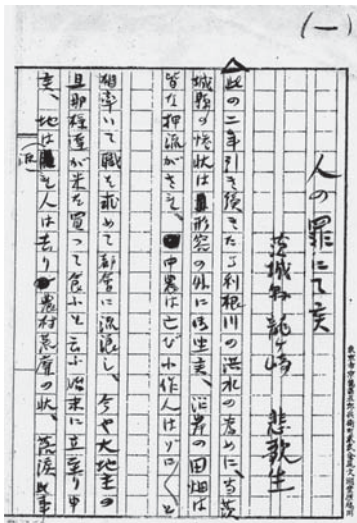 (一)
人の罪にて亥
茨城県龍ヶ崎 悲歌生
此の二年引き続きたる利根川の洪水の為めに、当茨
城県の惨状は形容の外に御坐亥、沿岸の田畑は
皆な押流がされ、中農は亡び小作人はリに〱と
相率いて職を求めて都会に流浪し、今や大地主の
旦那様達が米を買って食ふと云ふ始末に立至り申
亥、地は え人は去り 農村荒廃の状、荒涼